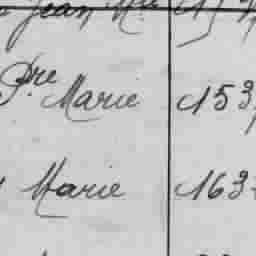 Jean Mie
Pre Marie 153
Marie 163